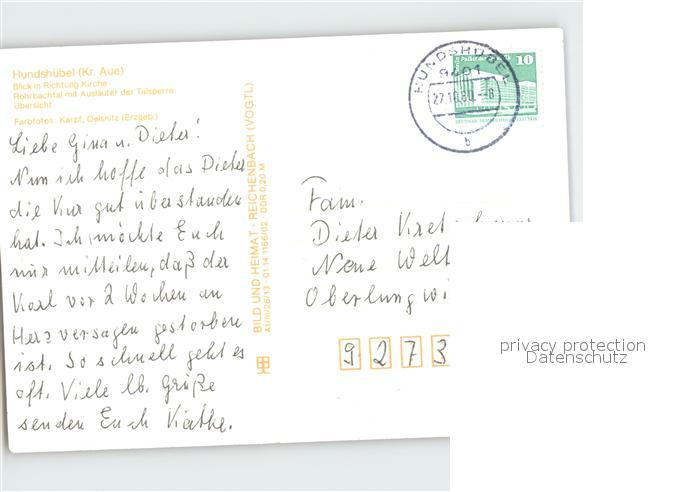 Hundshübel (Kr. Aue)
Blick in Richtung Kirche
Rohrbachtal mit Ausläuter der Talsperre
Übersicht
Farbfotos Karpf, Oelsnitz (Erzgeb.)
Liebe Gina u. Dieter!
Nun ich hoffe das Dieter
die Kur gut überstanden
hat. Ich möchte Euch
nur mitteilen, daß der
Karl vor 2 Wochen an
Herzversagen gestorben
ist. So schnell geht es
oft. Viele lb. Grüße
senden Euch Käthe.
BILD UND HEIMAT · REICHENBACH (VOGTL)
01 14 1166/02 DDR 0,20 M
HUNDSHÜBEL
9401
27.10.80.-8
b
10
Fam.
Dieter
Neue Welt
Oberlungwi
9 2 7 3
privacy protection
Datenschutz